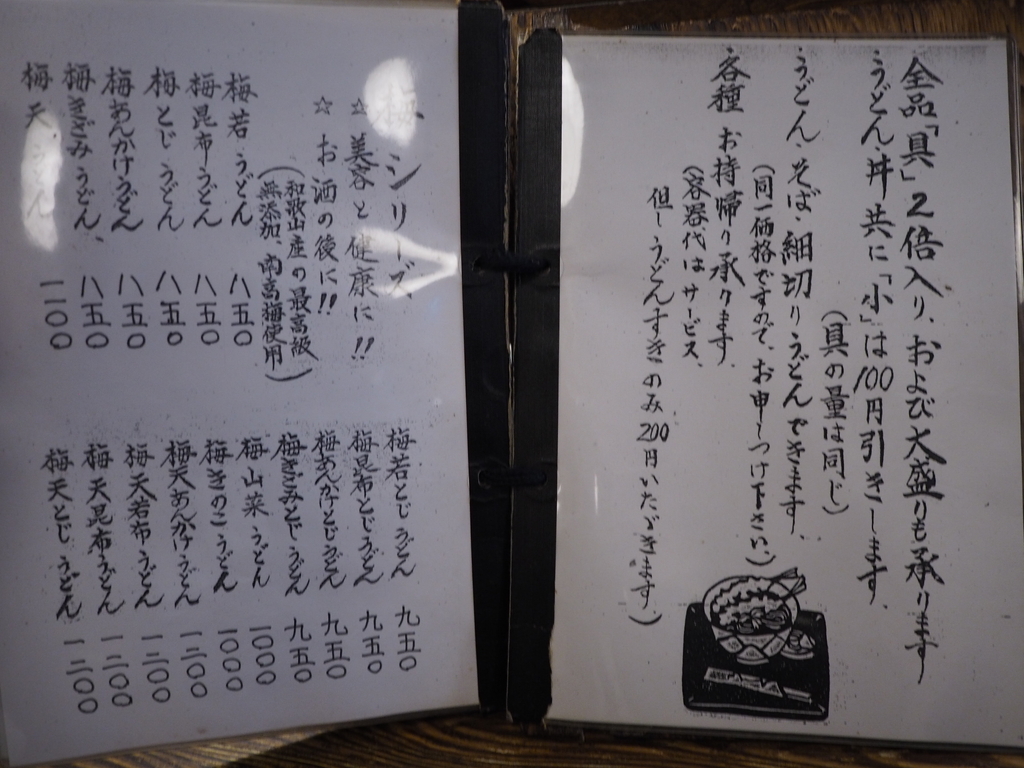 全品「具」2倍入り、および大盛りも承ります
うどん、丼共に「小」は100円引きします、
(具の量は同じ)
うどん、そば、細切りうどんできます、
(同一価格ですので、お申しつけ下さい、)
各種 お持帰り承ります、
(容器代はサービス、
但しうどんすきのみ200円いただきます)
梅シリーズ、
☆ 美容と健康に!!
☆ お酒の後に!!
(和歌山産の最高級
無添加、南高梅使用)
梅若うどん 八五〇
梅昆布うどん 八五〇
梅とじうどん 八五〇
梅あんかけうどん 八五〇
梅きざみうどん、 八五〇
梅天うどん 一一〇〇
梅若とじうどん 九五〇
梅昆布とじうどん 九五〇
梅あんかけとじうどん 九五〇
梅きざみとじうどん 九五〇
梅山菜うどん 一〇〇〇
梅きのこうどん 一〇〇〇
梅天あんかけうどん 一二〇〇
梅天若布うどん 一二〇〇
梅天昆布うどん 一二〇〇
梅天とじうどん 一二〇〇